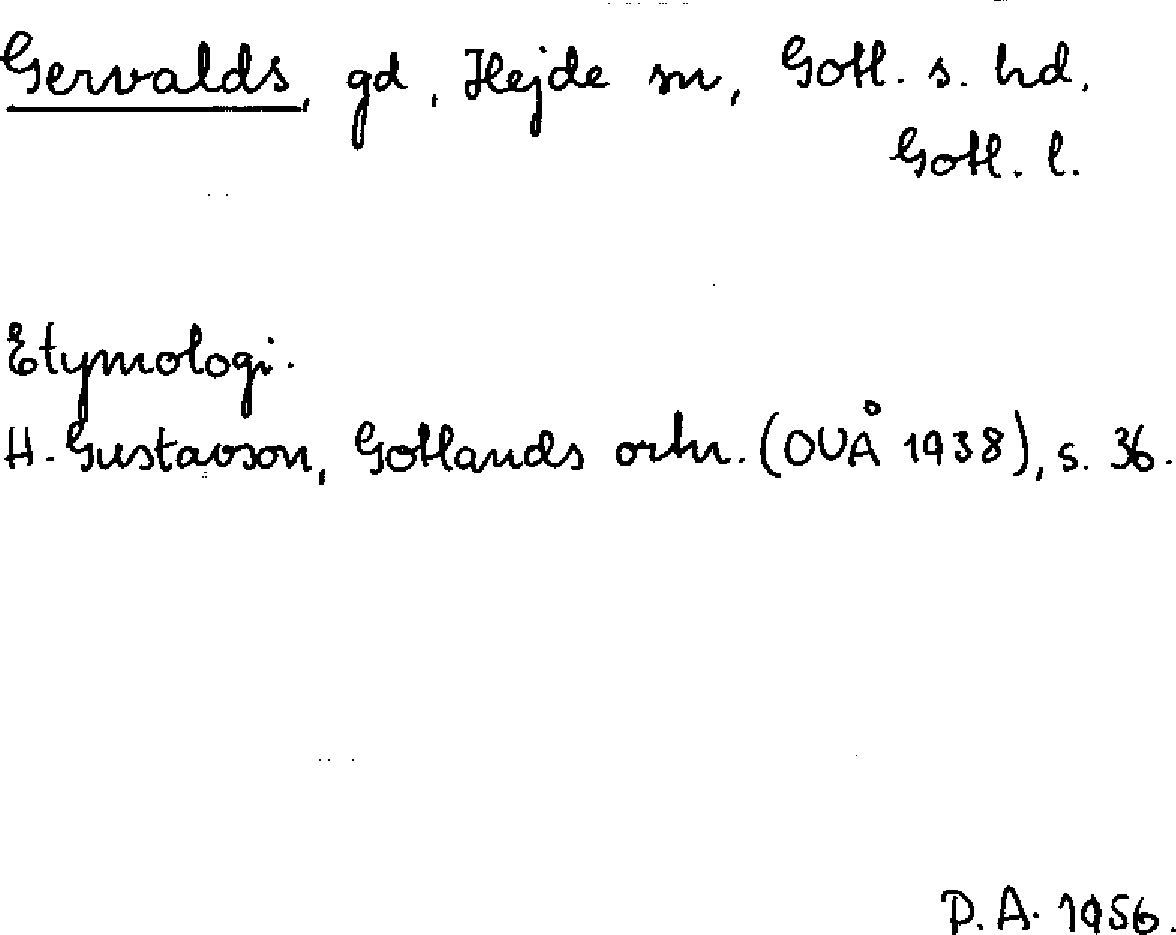 Gervalds, gd, Hejde sn, Gotl. s. hd.
Gotl. l.
Etymologi.
H. Gustavson, Gotlands ortn. (OUÅ 1938), s. 36.
D.A. 1956.